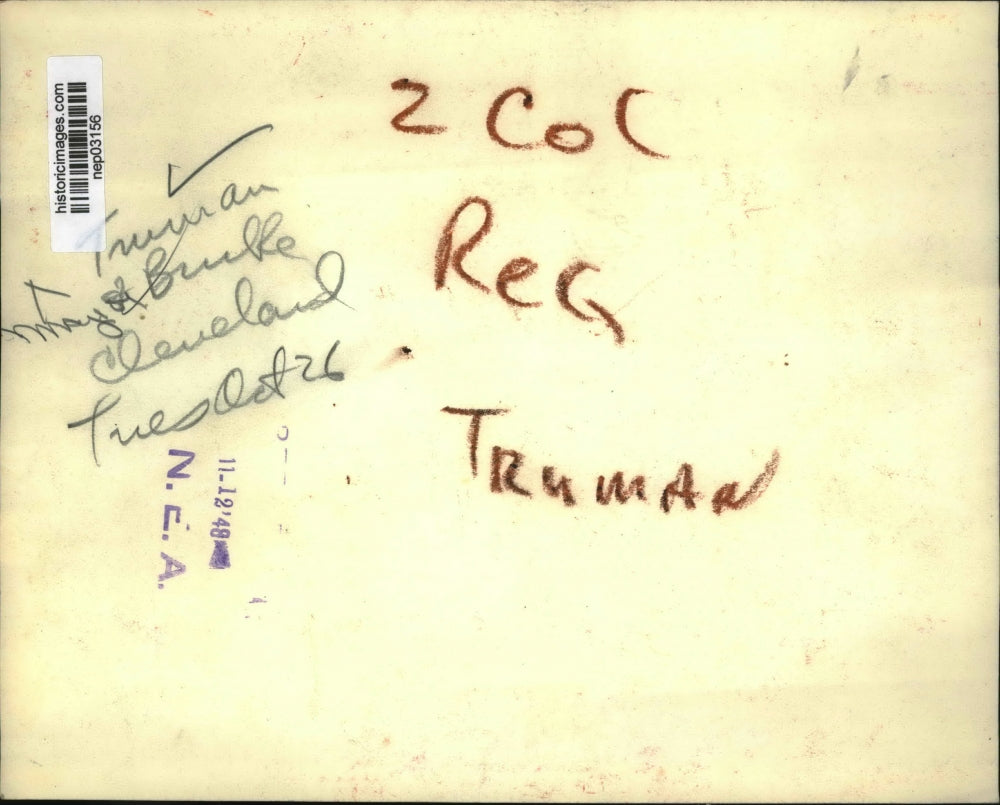 historicimages.com
nep03156
2 Col
Reg
TRUMAN
Truman
& Burke
Cleveland
Tues Oct 26
11-12'48
N.E.A.